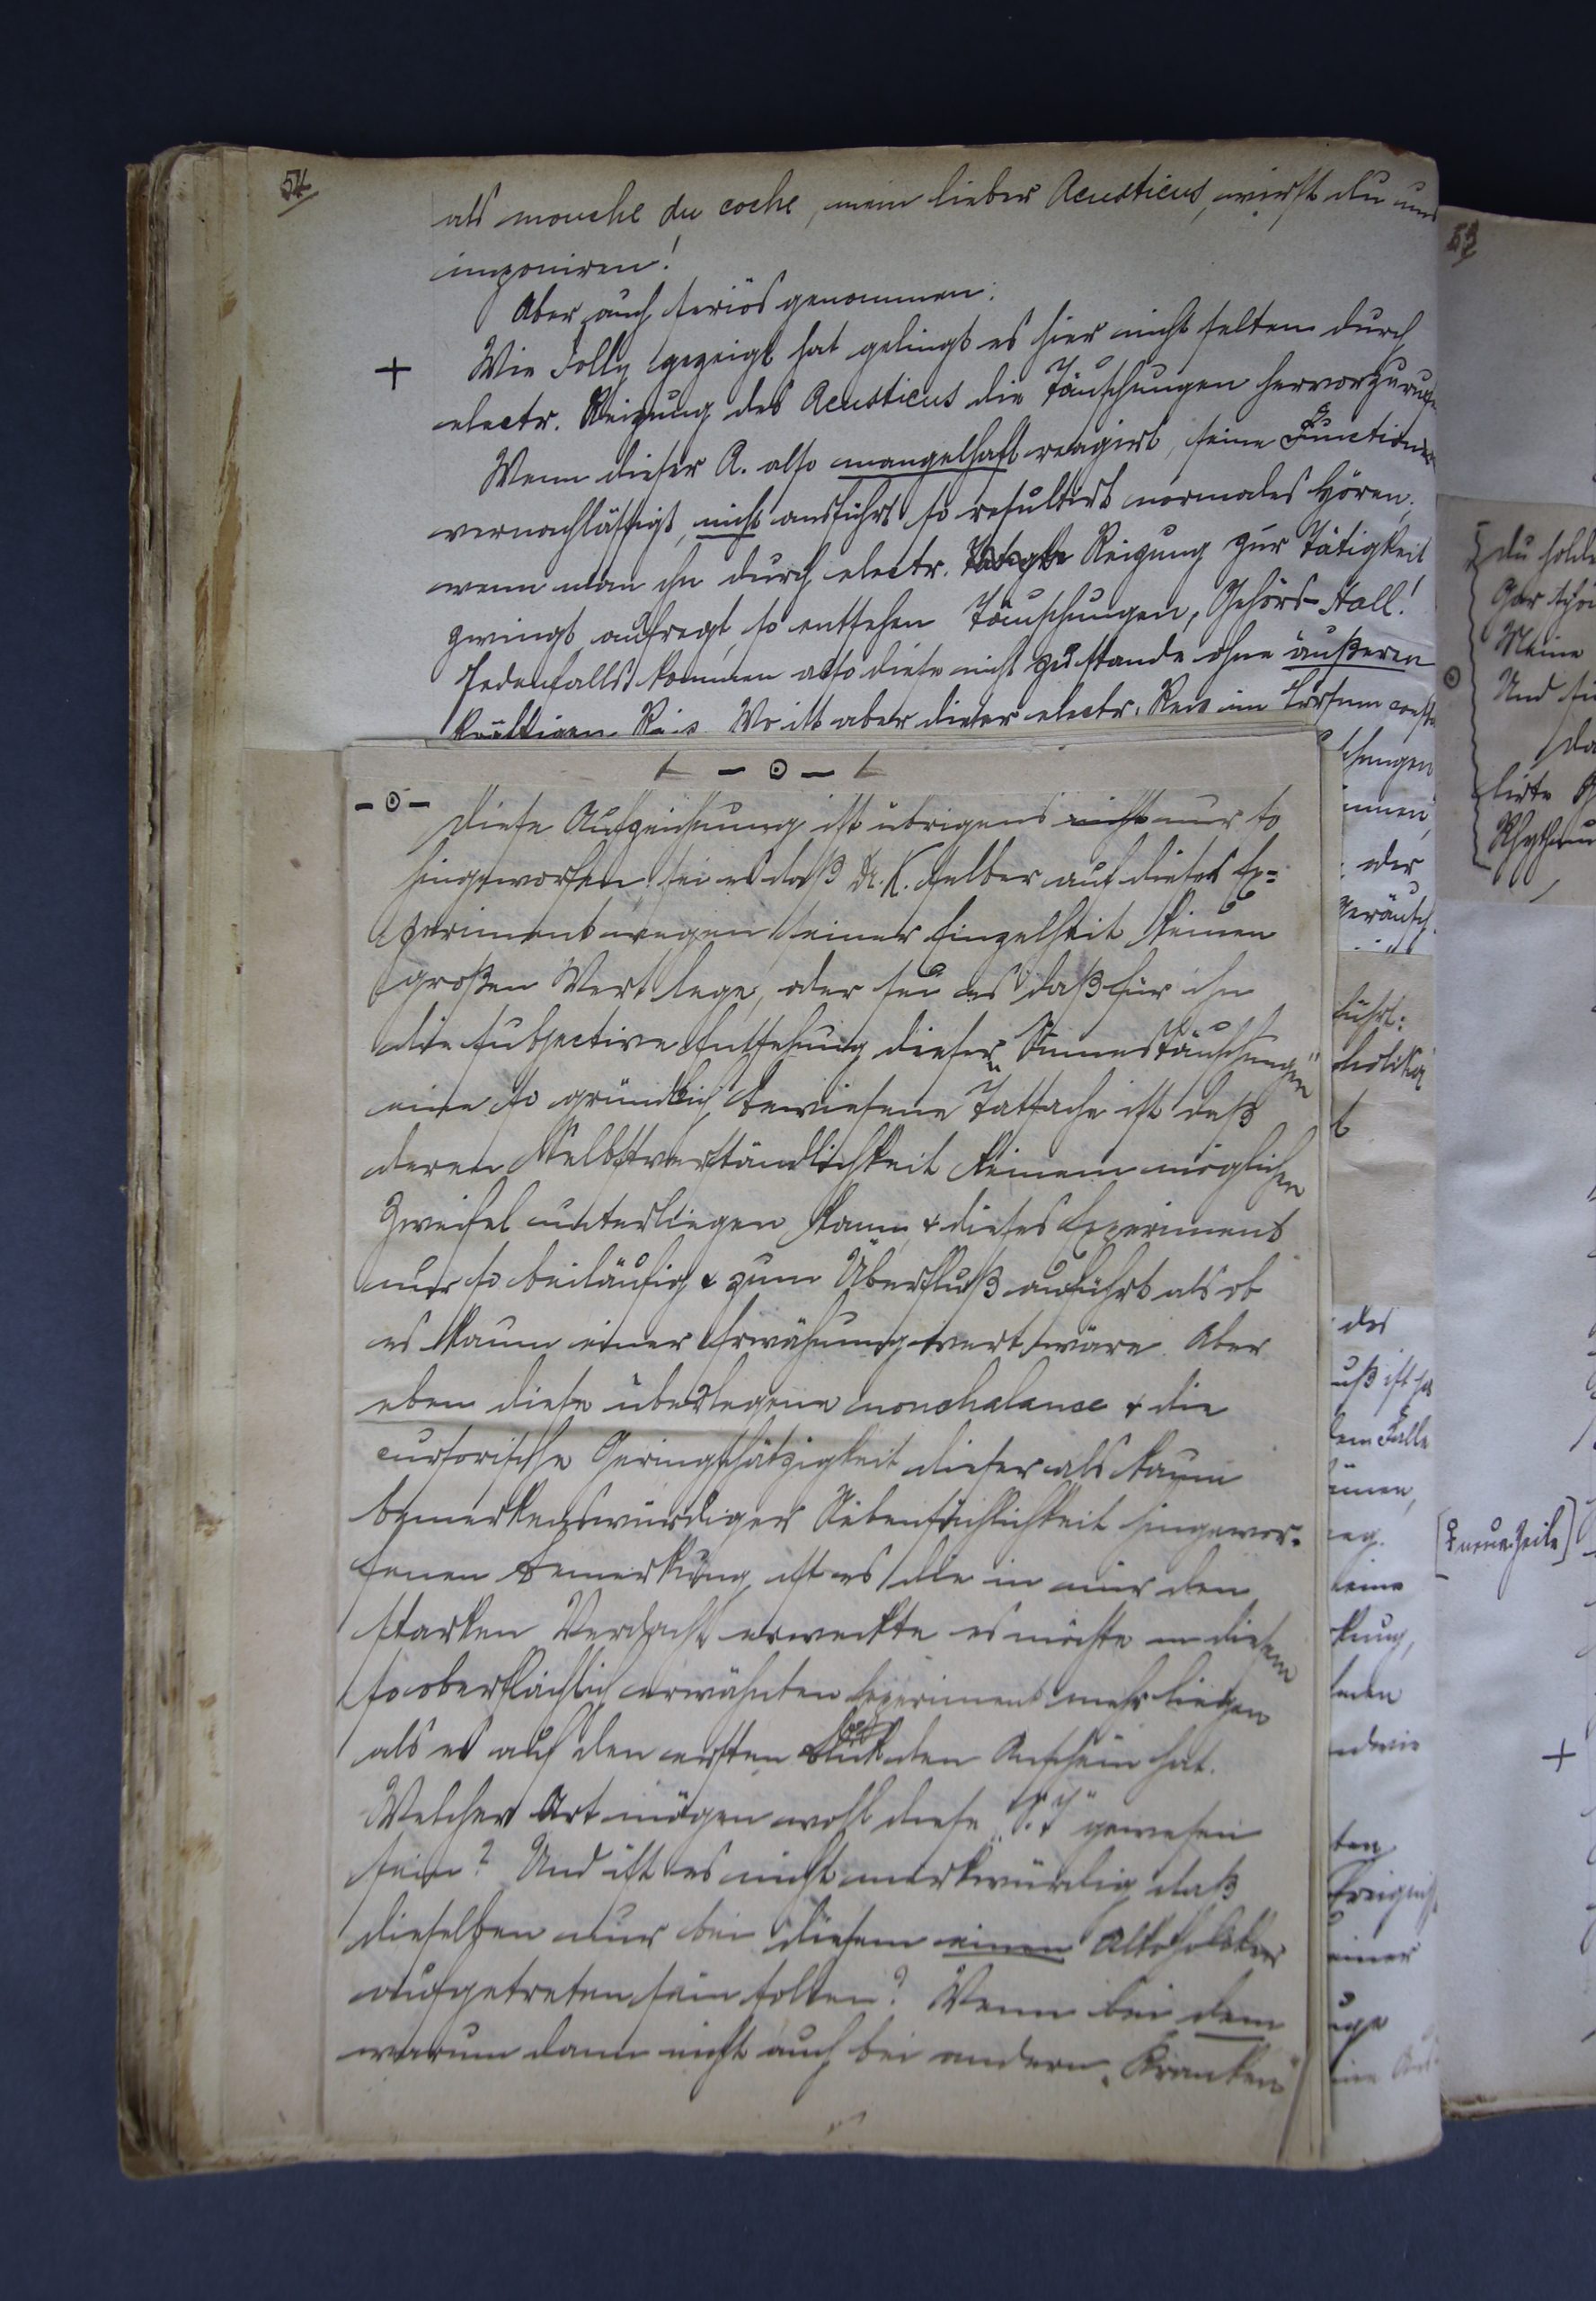 54
als mouche du coche, mein lieber Acusticus, wirst du uns
imponiren!
Aber auch seriös genommen:
+ Wie Jolly gezeigt hat gelingt es hier nicht selten durch
electr. Reizung des Acusticus die Täuschungen hervorzurufen
Wenn dieser A. also mangelhaft reagirt, seine Functionen
vernachlässigt, nicht ausführt so resultirt normales Hören;
wenn man ihn durch electr. Reizung zur Tätigkeit
zwingt, aufregt, so entstehen Täuschungen, Gehörs-Hall.!
Jedenfalls kommen also diese nicht zustande ohne äußeren
kräftigen Reiz. Wo ist aber dieser electr. Reiz im
- ⊙ -
- ⊙ - Diese Aufzeichnung ist übrigens nicht nur so
hingeworfen, sei es daß Dr. K. selber auf dieses Ex=
periment wegen seiner Einzelheit keinen
großen Wert lege, oder sei es daß für ihn
die subjective Entstehung dieser „Sinnestäuschungen"
eine so gründlich bewiesene Tatsache ist daß
deren Selbstverständlichkeit keinem möglichen
Zweifel unterliegen kann & dieses Experiment
nur so beiläufig & zum Überfluß anführt als ob
es kaum einer Erwähnung wert wäre. Aber
eben diese überlegene nonchalance & die
cursorische Geringschätzigkeit dieser als kaum
bemerkenswürdiger Nebensächlichkeit hingewor=
fenen Bemerkung ist es die in mir den
starken Verdacht erweckte es möchte in diesem
so oberflächlich erwähnten Experiment mehr liegen
als es auf den ersten Blick den Anschein hat.
Welcher Art mögen wohl diese „S.T" gewesen
sein? Und ist es nicht merkwürdig daß
dieselben nur bei diesem einen Alkoholiker
aufgetreten sein sollen? Wenn bei dem
warum dann nicht auch bei andern „Kranken"